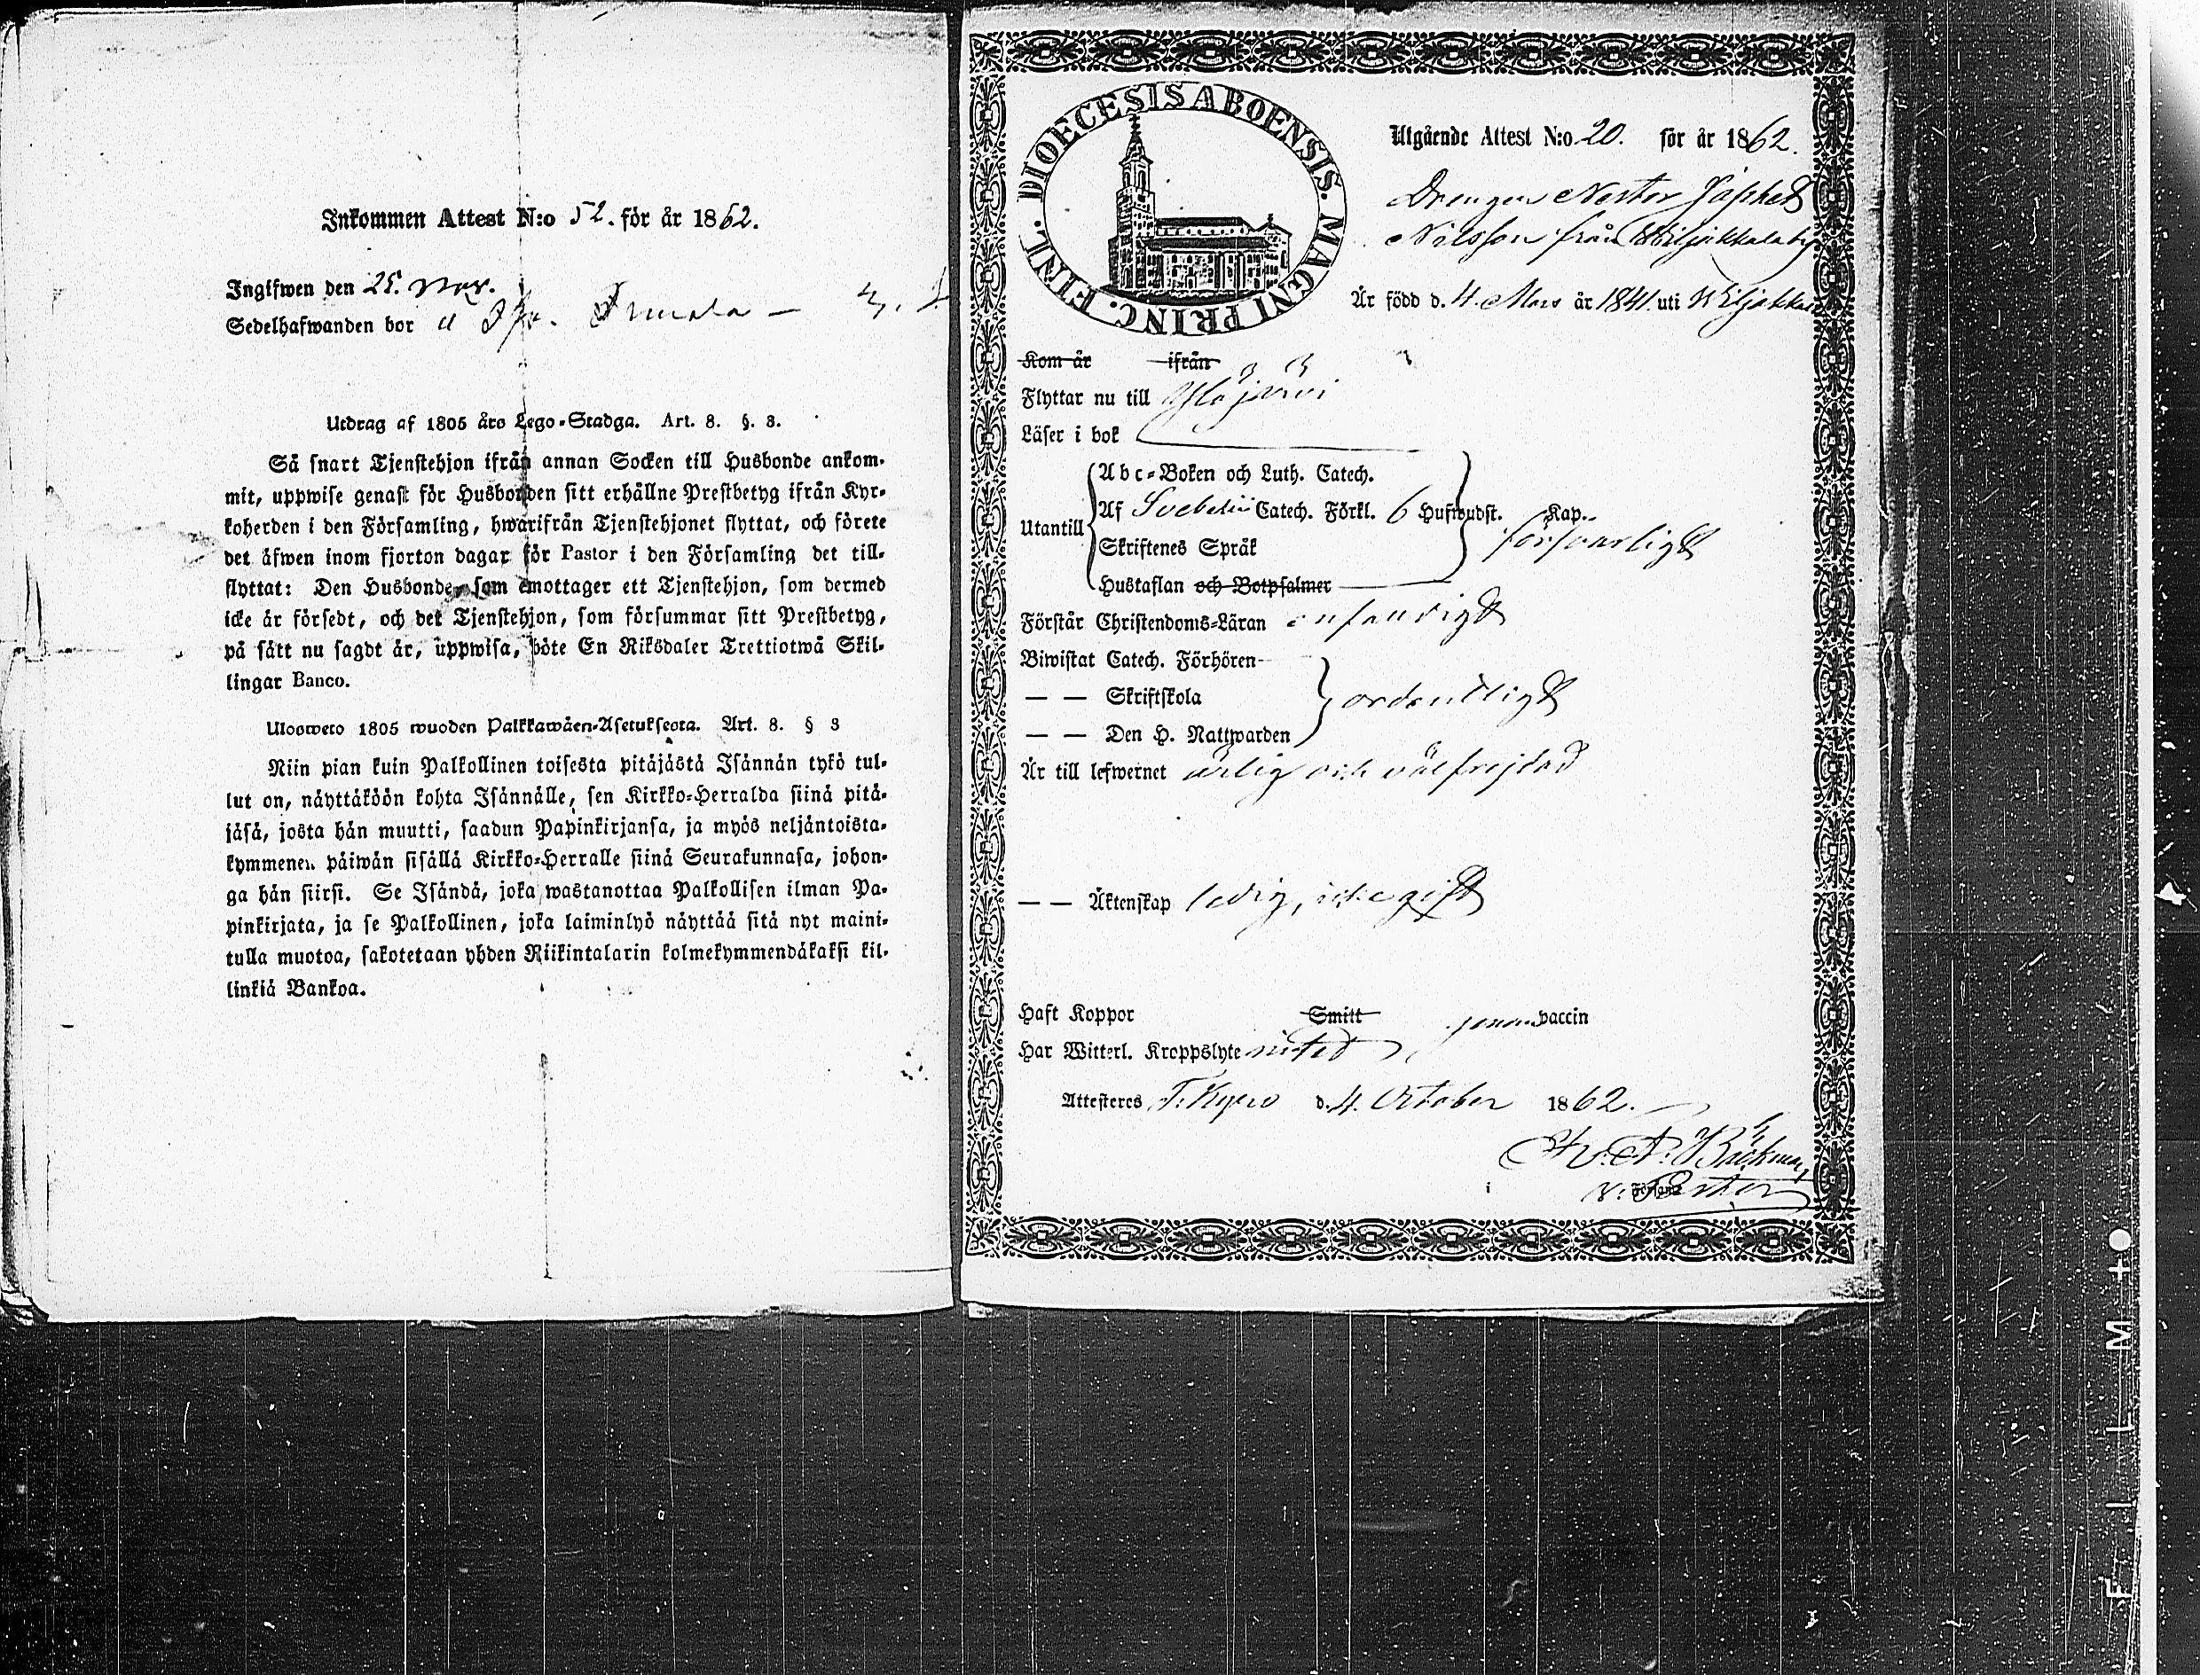 Inkommen Attest N:o 52. för år 1862.
Ingifwen den 25. Nov.
Sedelhafwanden bor å
Utdrag af 1805 års Lego-Stadga. Art. 8. §. 3.
Så snart Tjenstehjon ifrån annan Socken till Husbonde ankom-
mit, uppwise genast för Husbonden sitt erhållne Prestbetyg ifrån Kyr-
koherden i den Församling, hwarifrån Tjenstehjonet flyttat, och förete
det äfwen inom fjorton dagar för Pastor i den Församling det till-
flyttat: Den Husbonde, som emottager ett Tjenstehjon, som dermed
icke är försedt, och det Tjenstehjon, som försummar sitt Prestbetyg,
på sätt nu sagdt är, uppwisa, böte En Riksdaler Trettiotwå Skil-
lingar Banco.
Ulosweto 1805 wuoden Palkkawäen-Asetuksesta. Art. 8. § 3
Niin pian kuin Palkollinen toisesta pitäjästä Isännän tykö tul-
lut on, näyttäköön kohta Isännälle, sen Kirkko-Herralda siinä pitä-
jäsä, josta hän muutti, saadun Papinkirjansa, ja myös neljäntoista-
kymmenen päiwän sisällä Kirkko-Herralle siinä Seurakunnasa, johon-
ga hän siirsi. Se Isändä, joka wastanottaa Palkollisen ilman Pa-
pinkirjata, ja se Palkollinen, joka laiminlyö näyttää sitä nyt maini-
tulla muotoa, sakotetaan yhden Riikintalarin kolmekymmendäkaksi kil-
linkiä Bankoa.
DIOECESIS ABOENSIS. MAGNI PRINC. FINL.
Utgående Attest N:o 20. för år 1862.
Drengen Nestor Japhet
Nilsson från Wiljakkala by
Är född d. 4. Mars år 1841. uti Wiljakkala
Kom år ifrån
Flyttar nu till Ylöjärvi
Läser i bok
Abc-Boken och Luth. Catech.
Utantill Af Svebelii Catech. Förkl. 6 Hufwudst. Kap. försvarligt
Skriftenes Språk
Hustaflan och Botpsalmer
Förstår Christendoms-Läran enfaldigt
Biwistat Catech. Förhören
— — Skriftskola ordentligt
— — Den H. Nattwarden
Är till lefwernet ärlig och välfrejdad
— — Äktenskap ledig, icke gift
Haft Koppor Smitt genom vaccin
Har Witterl. Kroppslyte intet
Attesteres T. Kyro d. 4. October 1862.
A. Bäckman,
v. Pastor
F i l m